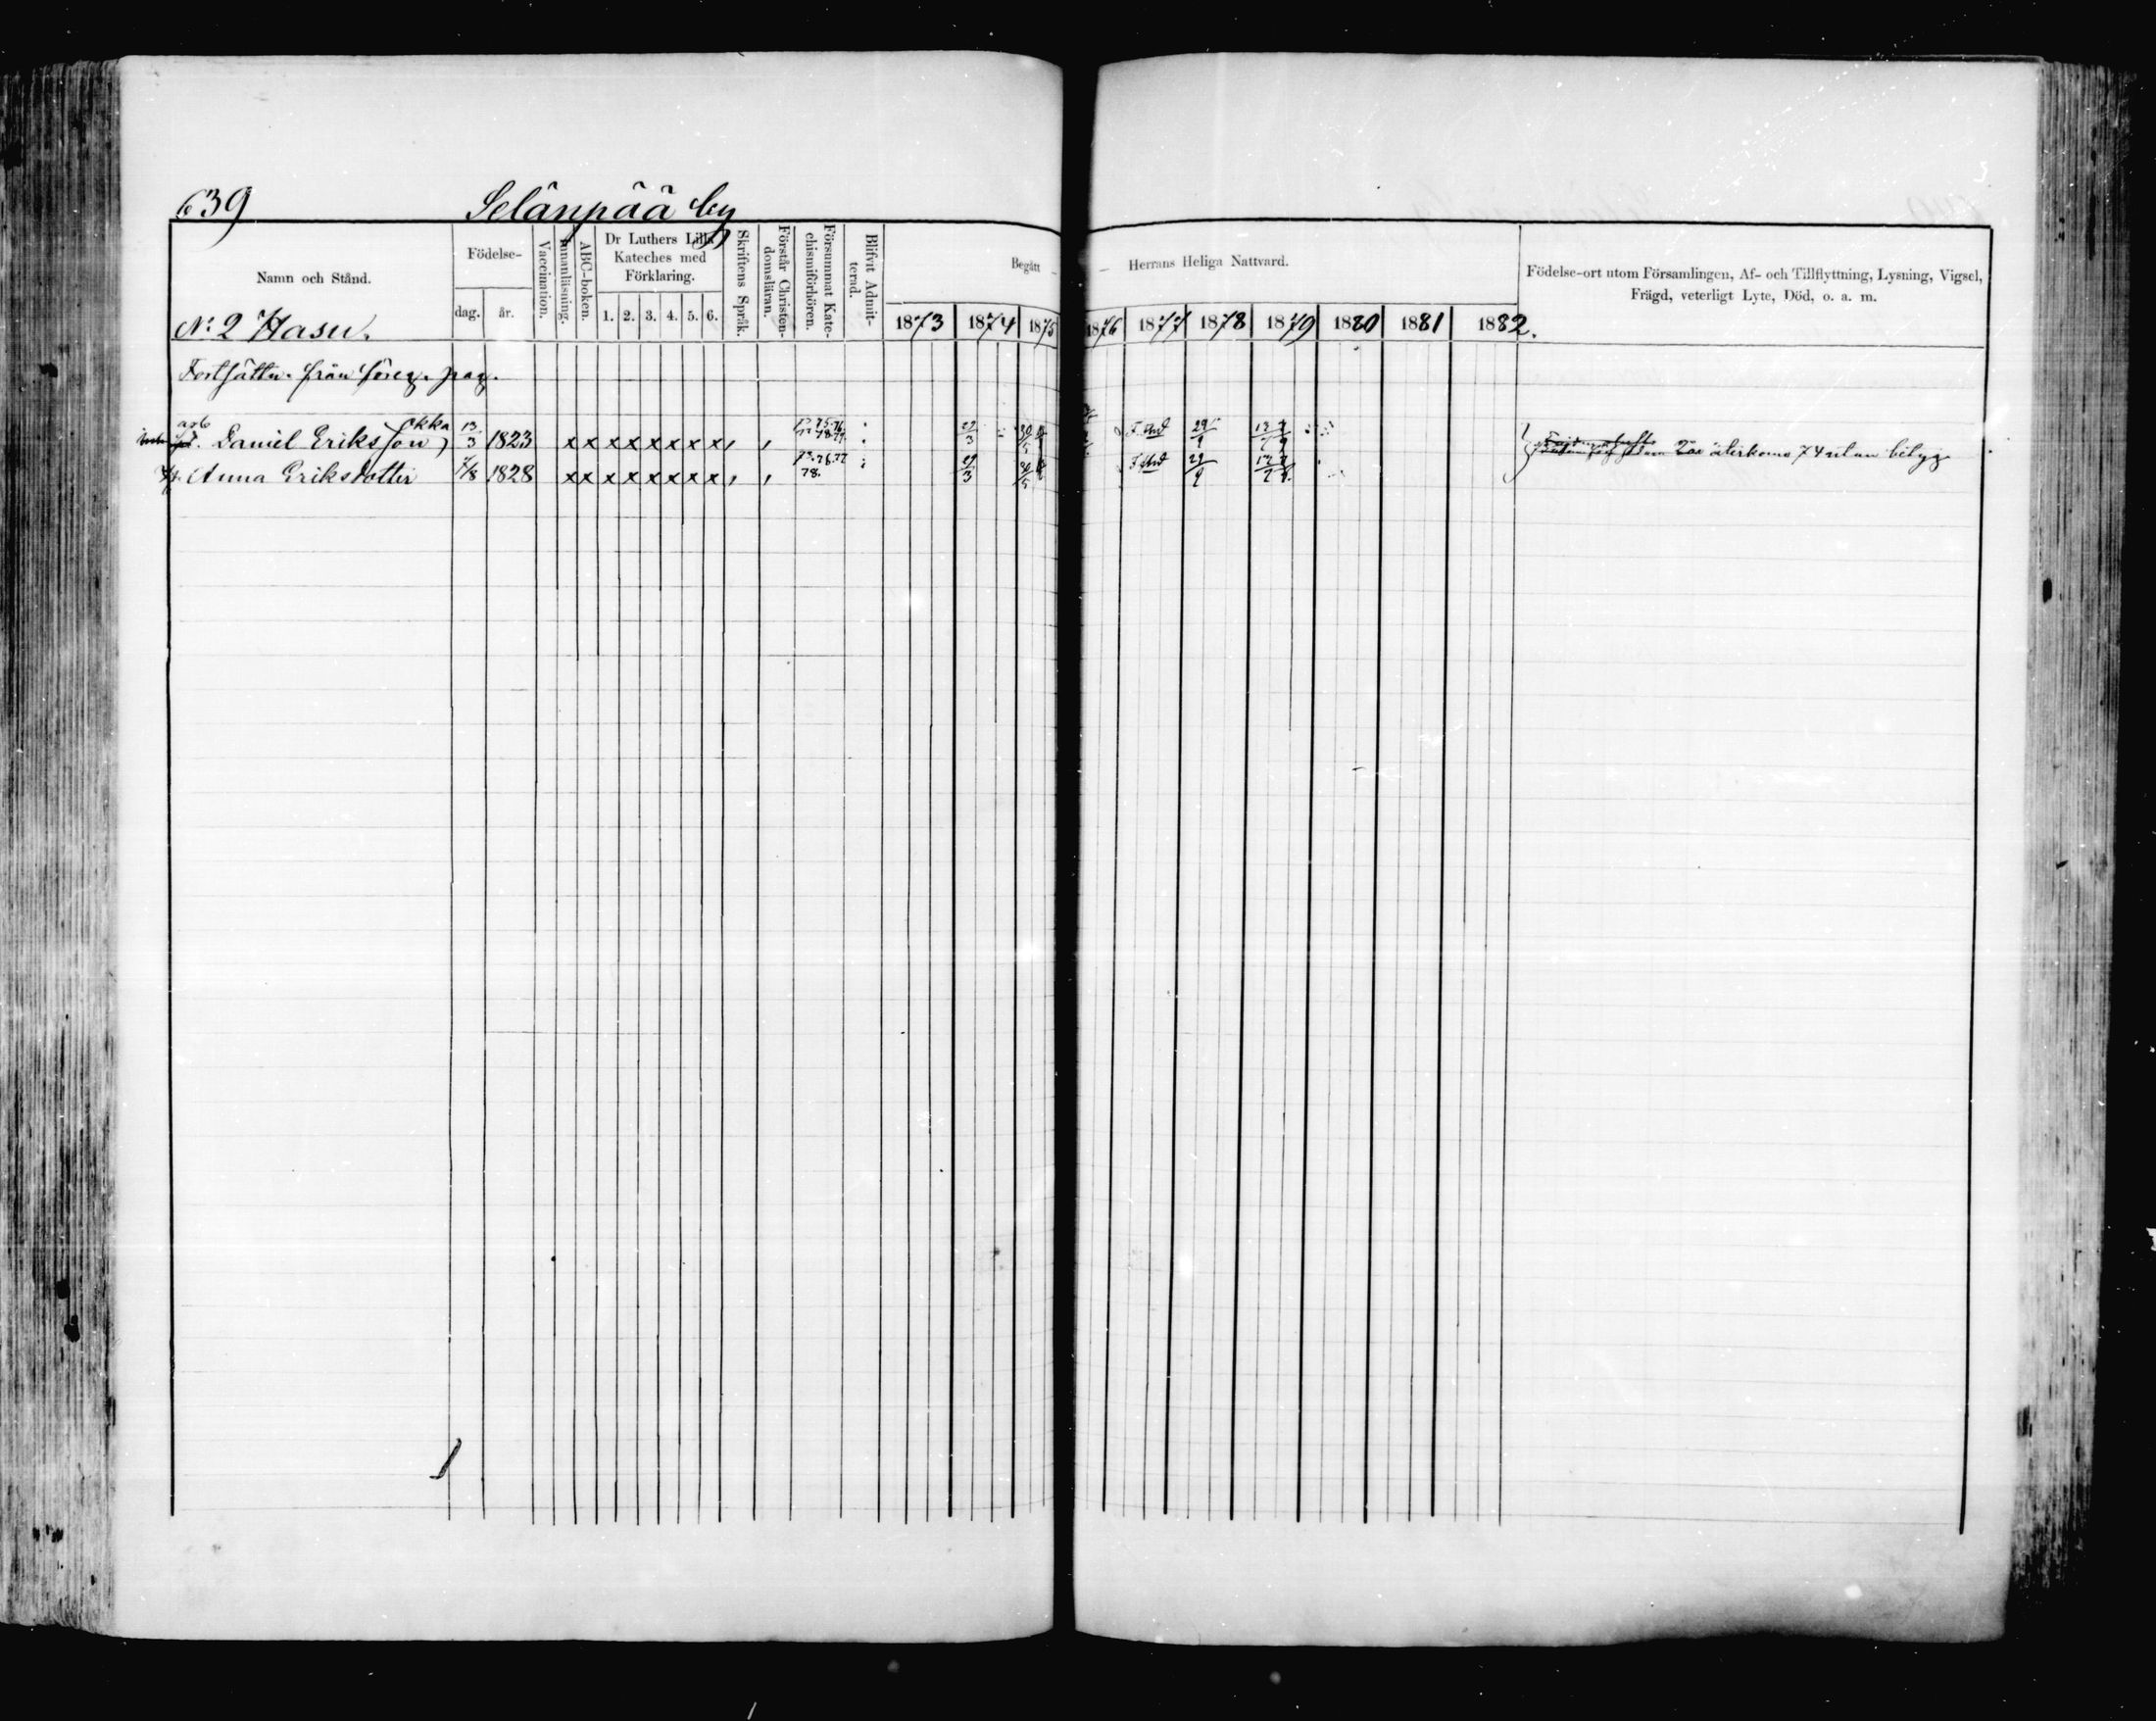 639 Selänpää by
Namn och Stånd.
Födelse-
dag. år.
Vaccination.
Innanläsning.
ABC-boken.
Dr Luthers Lilla
Kateches med
Förklaring.
1. 2. 3. 4. 5. 6.
Skriftens Språk.
Förstår Christen-
domsläran.
Försummat Kate-
chismiförhören.
Blifvit Admit-
terad.
Begått — — Herrans Heliga Nattvard.
1873 1874 1875 1876 1877 1878 1879 1880 1881 1882.
Födelse-ort utom Församlingen, Af- och Tillflyttning, Lysning, Vigsel,
Frägd, veterligt Lyte, Död, o. a. m.
No: 2 Hasu.
Fortsättn. från föreg. pag.
arb Okka
Daniel Eriksson 13/3 1823 x x x x x x x x 29/3 30/5 29/9
återkomo 74 utan betyg
Anna Eriksdotter 7/8 1828 x x x x x x x x 75.76.77 78. 29/3 30/5 29/9